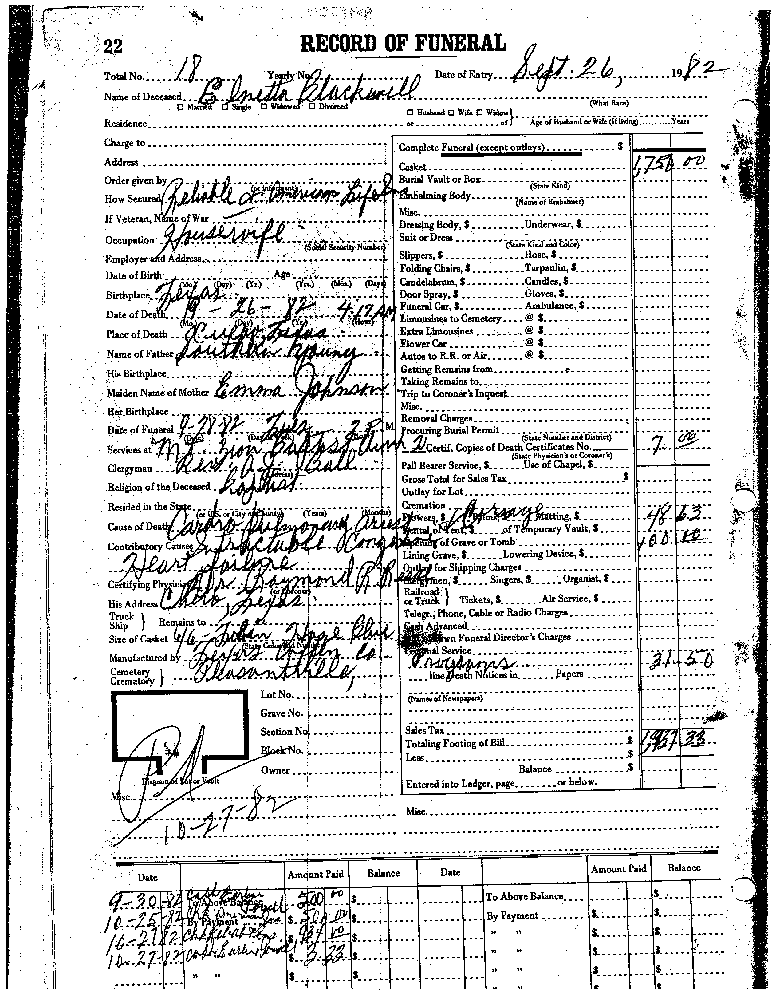 22 RECORD OF FUNERAL
Total No. 18 Yearly No. Date of Entry Sept. 26, 1982
Name of Deceased Blackwell (What Race)
Married Single Widowed Divorced Husband Wife Widow
Residence or of Age of Husband or Wife (if living) Years
Charge to
Address
Order given by
How Secured Reliable American Life
If Veteran, Name of War
Occupation Housewife
(Social Security Number)
Employer and Address
Date of Birth Age
(Mo.) (Day) (Yr.) (Yrs.) (Mos.) (Days)
Birthplace Texas
Date of Death 9-26-82 4:17
Place of Death Cuero Texas
Name of Father Young
His Birthplace
Maiden Name of Mother Emma Johnson
Her Birthplace
Date of Funeral 9-28-82 Tues. 2 P. M.
Services at Mt. Zion Baptist Church
Clergyman Rev.
Religion of the Deceased Baptist
Resided in the State
Cause of Death Cardio Pulmonary Arrest
Contributory Causes Intractable
Heart failure
Certifying Physician Dr. Raymond R. Reese
His Address Cuero, Texas
Truck Ship Remains to
Size of Casket 6/6 Blue
Manufactured by Texas Coffin Co.
Cemetery Crematory Pleasantville,
Lot No.
Grave No.
Section No.
Block No.
Owner
Diagram of Lot or Vault
Misc.
10-27-82
Complete Funeral (except outlays) $
Casket 1,750 00
Burial Vault or Box
(State Kind)
Embalming Body
(Name of Embalmer)
Misc.
Dressing Body, $ Underwear, $
Suit or Dress
(State Kind and Color)
Slippers, $ Hose, $
Folding Chairs, $ Tarpaulin, $
Candelabrum, $ Candles, $
Door Spray, $ Gloves, $
Funeral Car, $ Ambulance, $
Limousines to Cemetery @ $
Extra Limousines @ $
Flower Car @ $
Autos to R.R. or Air @ $
Getting Remains from
Taking Remains to
Trip to Coroner's Inquest
Misc.
Removal Charges
Procuring Burial Permit
(State Number and District)
2 Certif. Copies of Death Certificates No. 7 00
(State Physician's or Coroner's)
Pall Bearer Service, $ Use of Chapel, $
Gross Total for Sales Tax $
Outlay for Lot
Cremation
Flowers, $ Matting, $ 48 63
Rental of Tent, $ of Temporary Vault, $
Opening of Grave or Tomb 100 00
Lining Grave, $ Lowering Device, $
Outlay for Shipping Charges
Clergymen, $ Singers, $ Organist, $
Railroad or Truck Tickets, $ Air Service, $
Telegr., Phone, Cable or Radio Charges
Cash Advanced
Out of Town Funeral Director's Charges
Personal Service
Programs 31 50
line Death Notices in Papers
(Names of Newspapers)
Sales Tax
Totaling Footing of Bill $ 1,937 33
Less $
Balance $
Entered into Ledger, page or below.
Misc.
Date Amount Paid Balance Date Amount Paid Balance
9-30-82 500 00 $ To Above Balance $ $
10-25-82 By Payment $ 500 00 $ By Payment $ $
10-27-82 $ 937 00 $ " " $ $
10-27-82 $ $ " " $ $
" " $ $ " " $ $